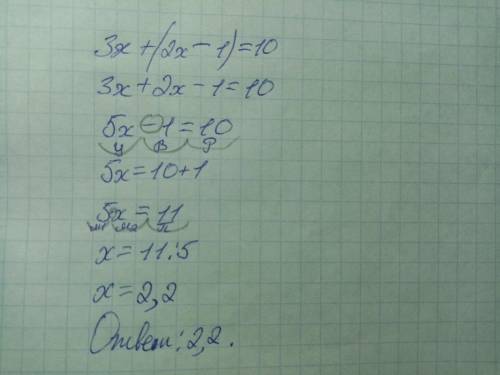 3x+(2x-1)=10
3x+2x-1=10
5x-1=10
у в р
5x=10+1
5x=11
мн мн п
x=11:5
x=2,2
Ответ: 2,2.